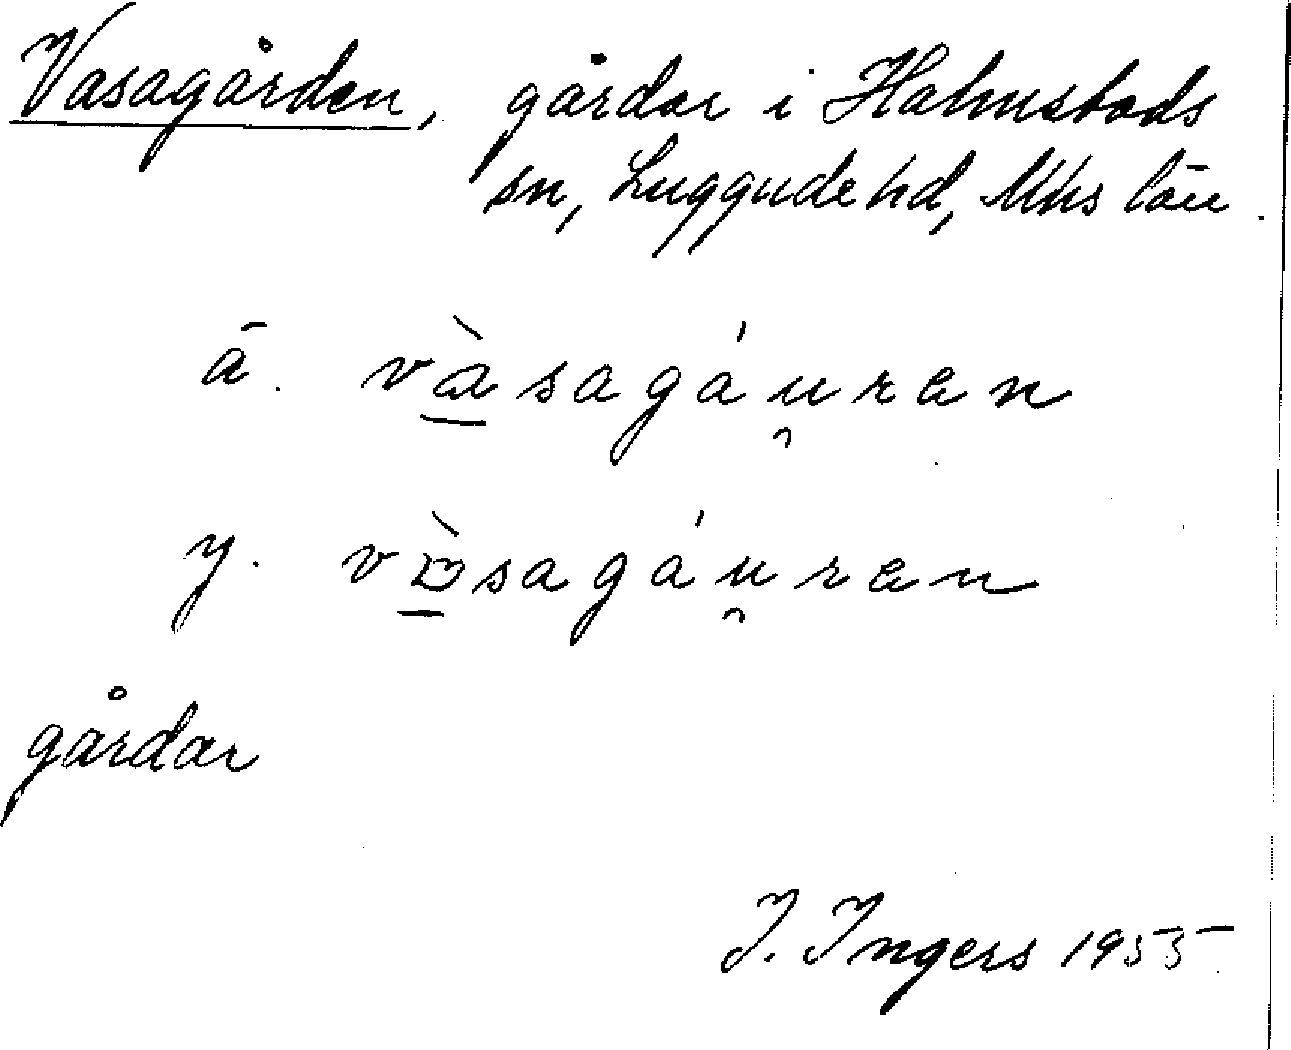 Vasagården, gårdar i Halmstads
sn, Luggude hd, Mhs län.
ä. vàsagáu̯ren
y. vɒ̀sagáu̯ren
gårdar
I. Ingers 1955